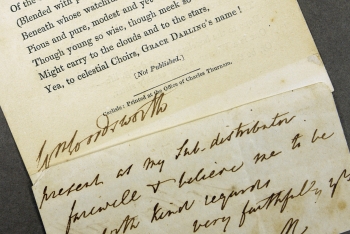 Of the
(Blended with p
Beneath whose watchfu
Pious and pure, modest and yet
Though young so wise, though meek so
Might carry to the clouds and to the stars,
Yea, to celestial Choirs, GRACE DARLING's name!
[Not Published.]
Carlisle: Printed at the Office of Charles Thurnam.
Wm Wordsworth
present as my Sub-distributor.
farewell & believe me to be
with kind regards
very faithfully yrs